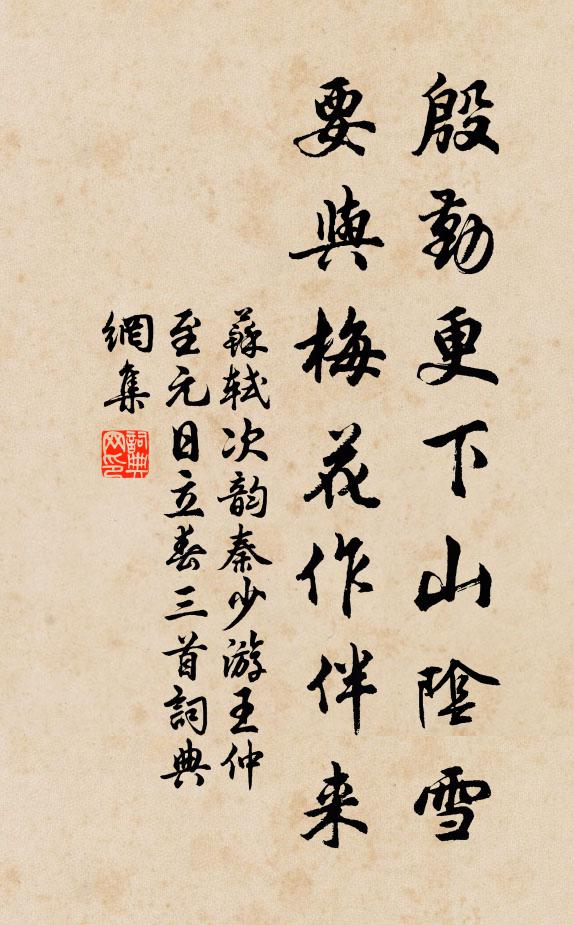 殷勤更下山陰雪
要與梅花作伴来
蘇軾次韵秦少游王仲
至元日立春三首詞典
網集
詞典网印